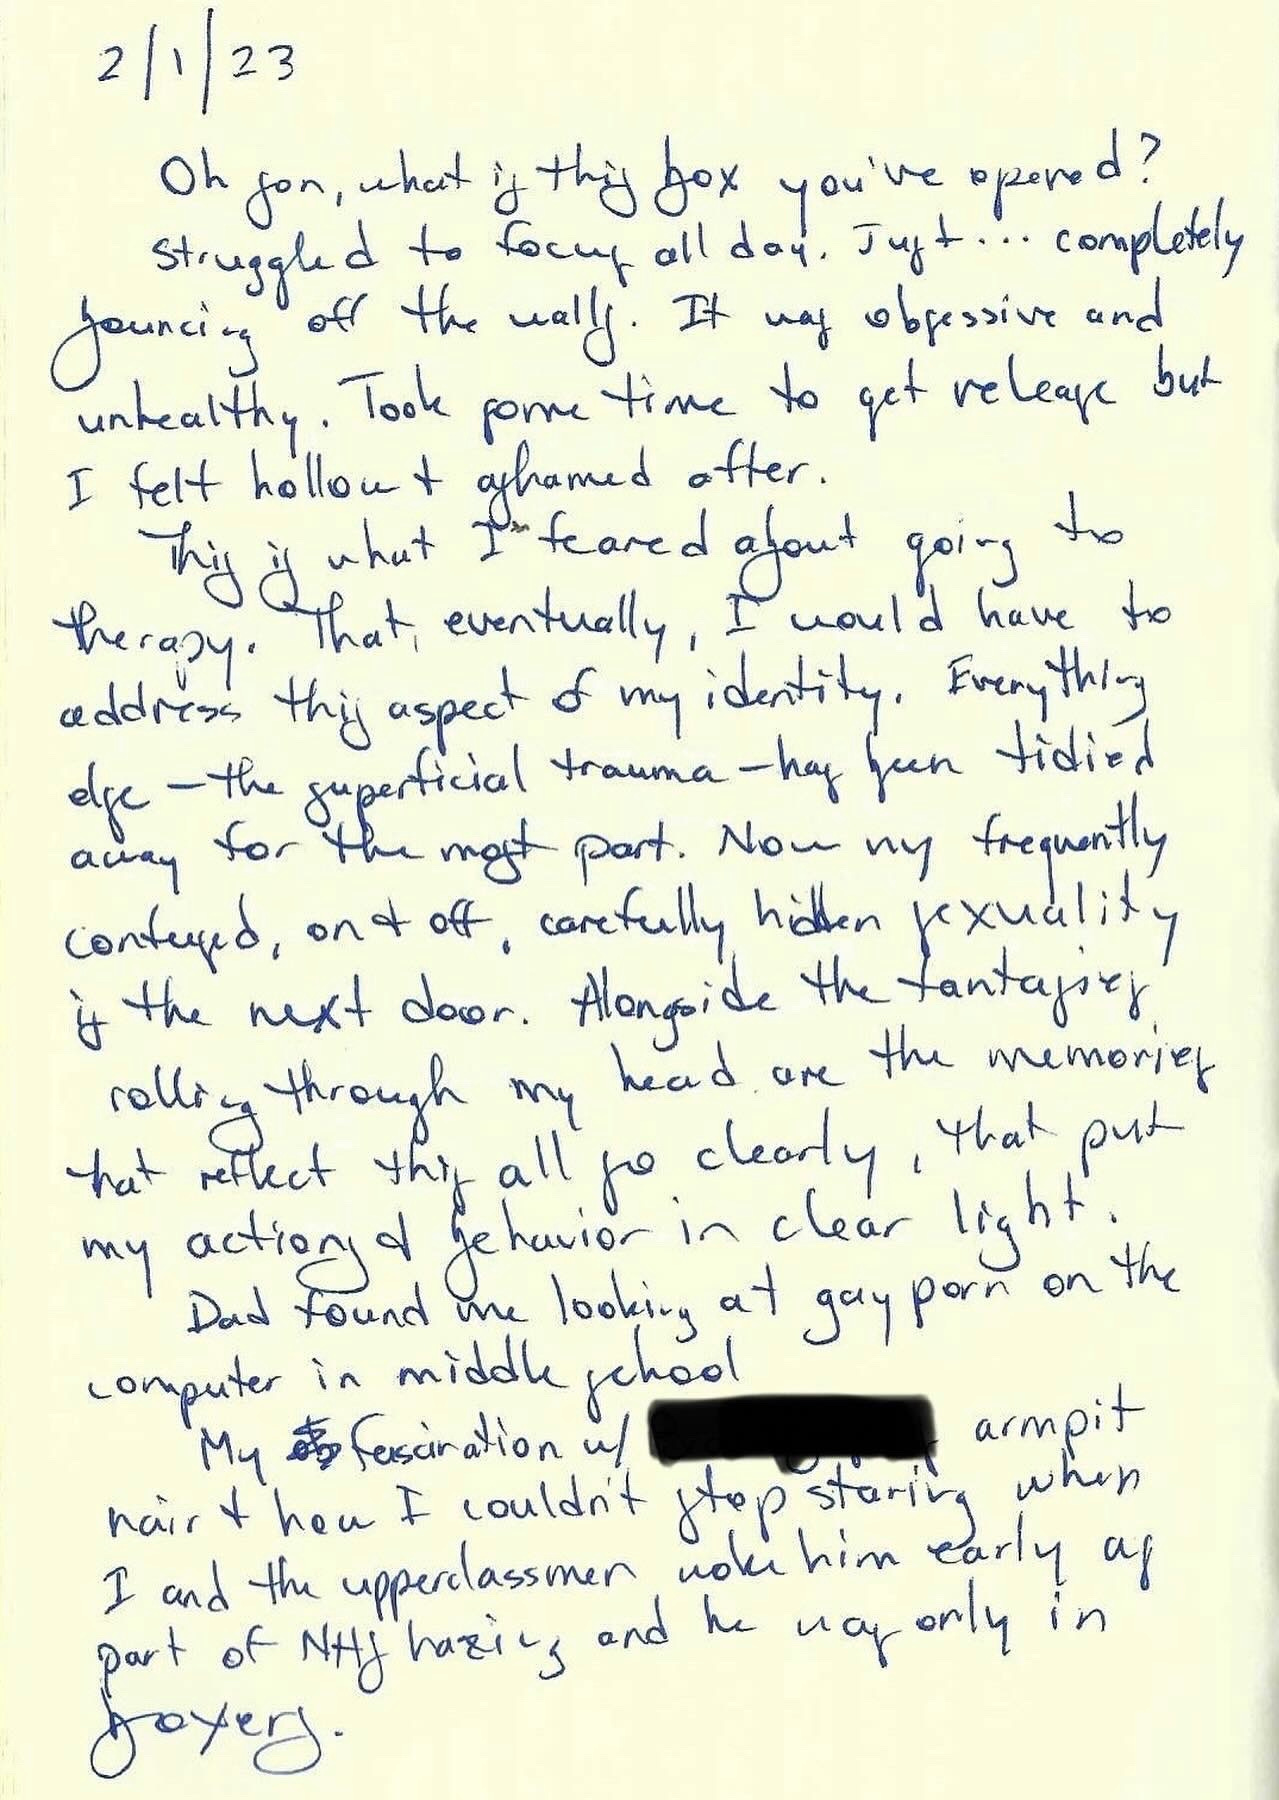 2/1/23
Oh son, what is this box you've opened?
struggled to focus all day. Just... completely
bouncing off the walls. It was obsessive and
unhealthy. Took some time to get release but
I felt hollow + ashamed after.
This is what I feared about going to
therapy. That, eventually, I would have to
address this aspect of my identity. Everything
else – the superficial trauma – has been tidied
away for the most part. Now my frequently
contused, on + off, carefully hidden sexuality
is the next door. Alongside the fantasies
rolling through my head are the memories
that reflect this all so clearly, that put
my actions & behavior in clear light.
Dad found me looking at gay porn on the
computer in middle school
My fascination w/ armpit
hair + how I couldn't stop staring when
I and the upperclassmen woke him early as
part of NHS hazing and he was only in
boxers.